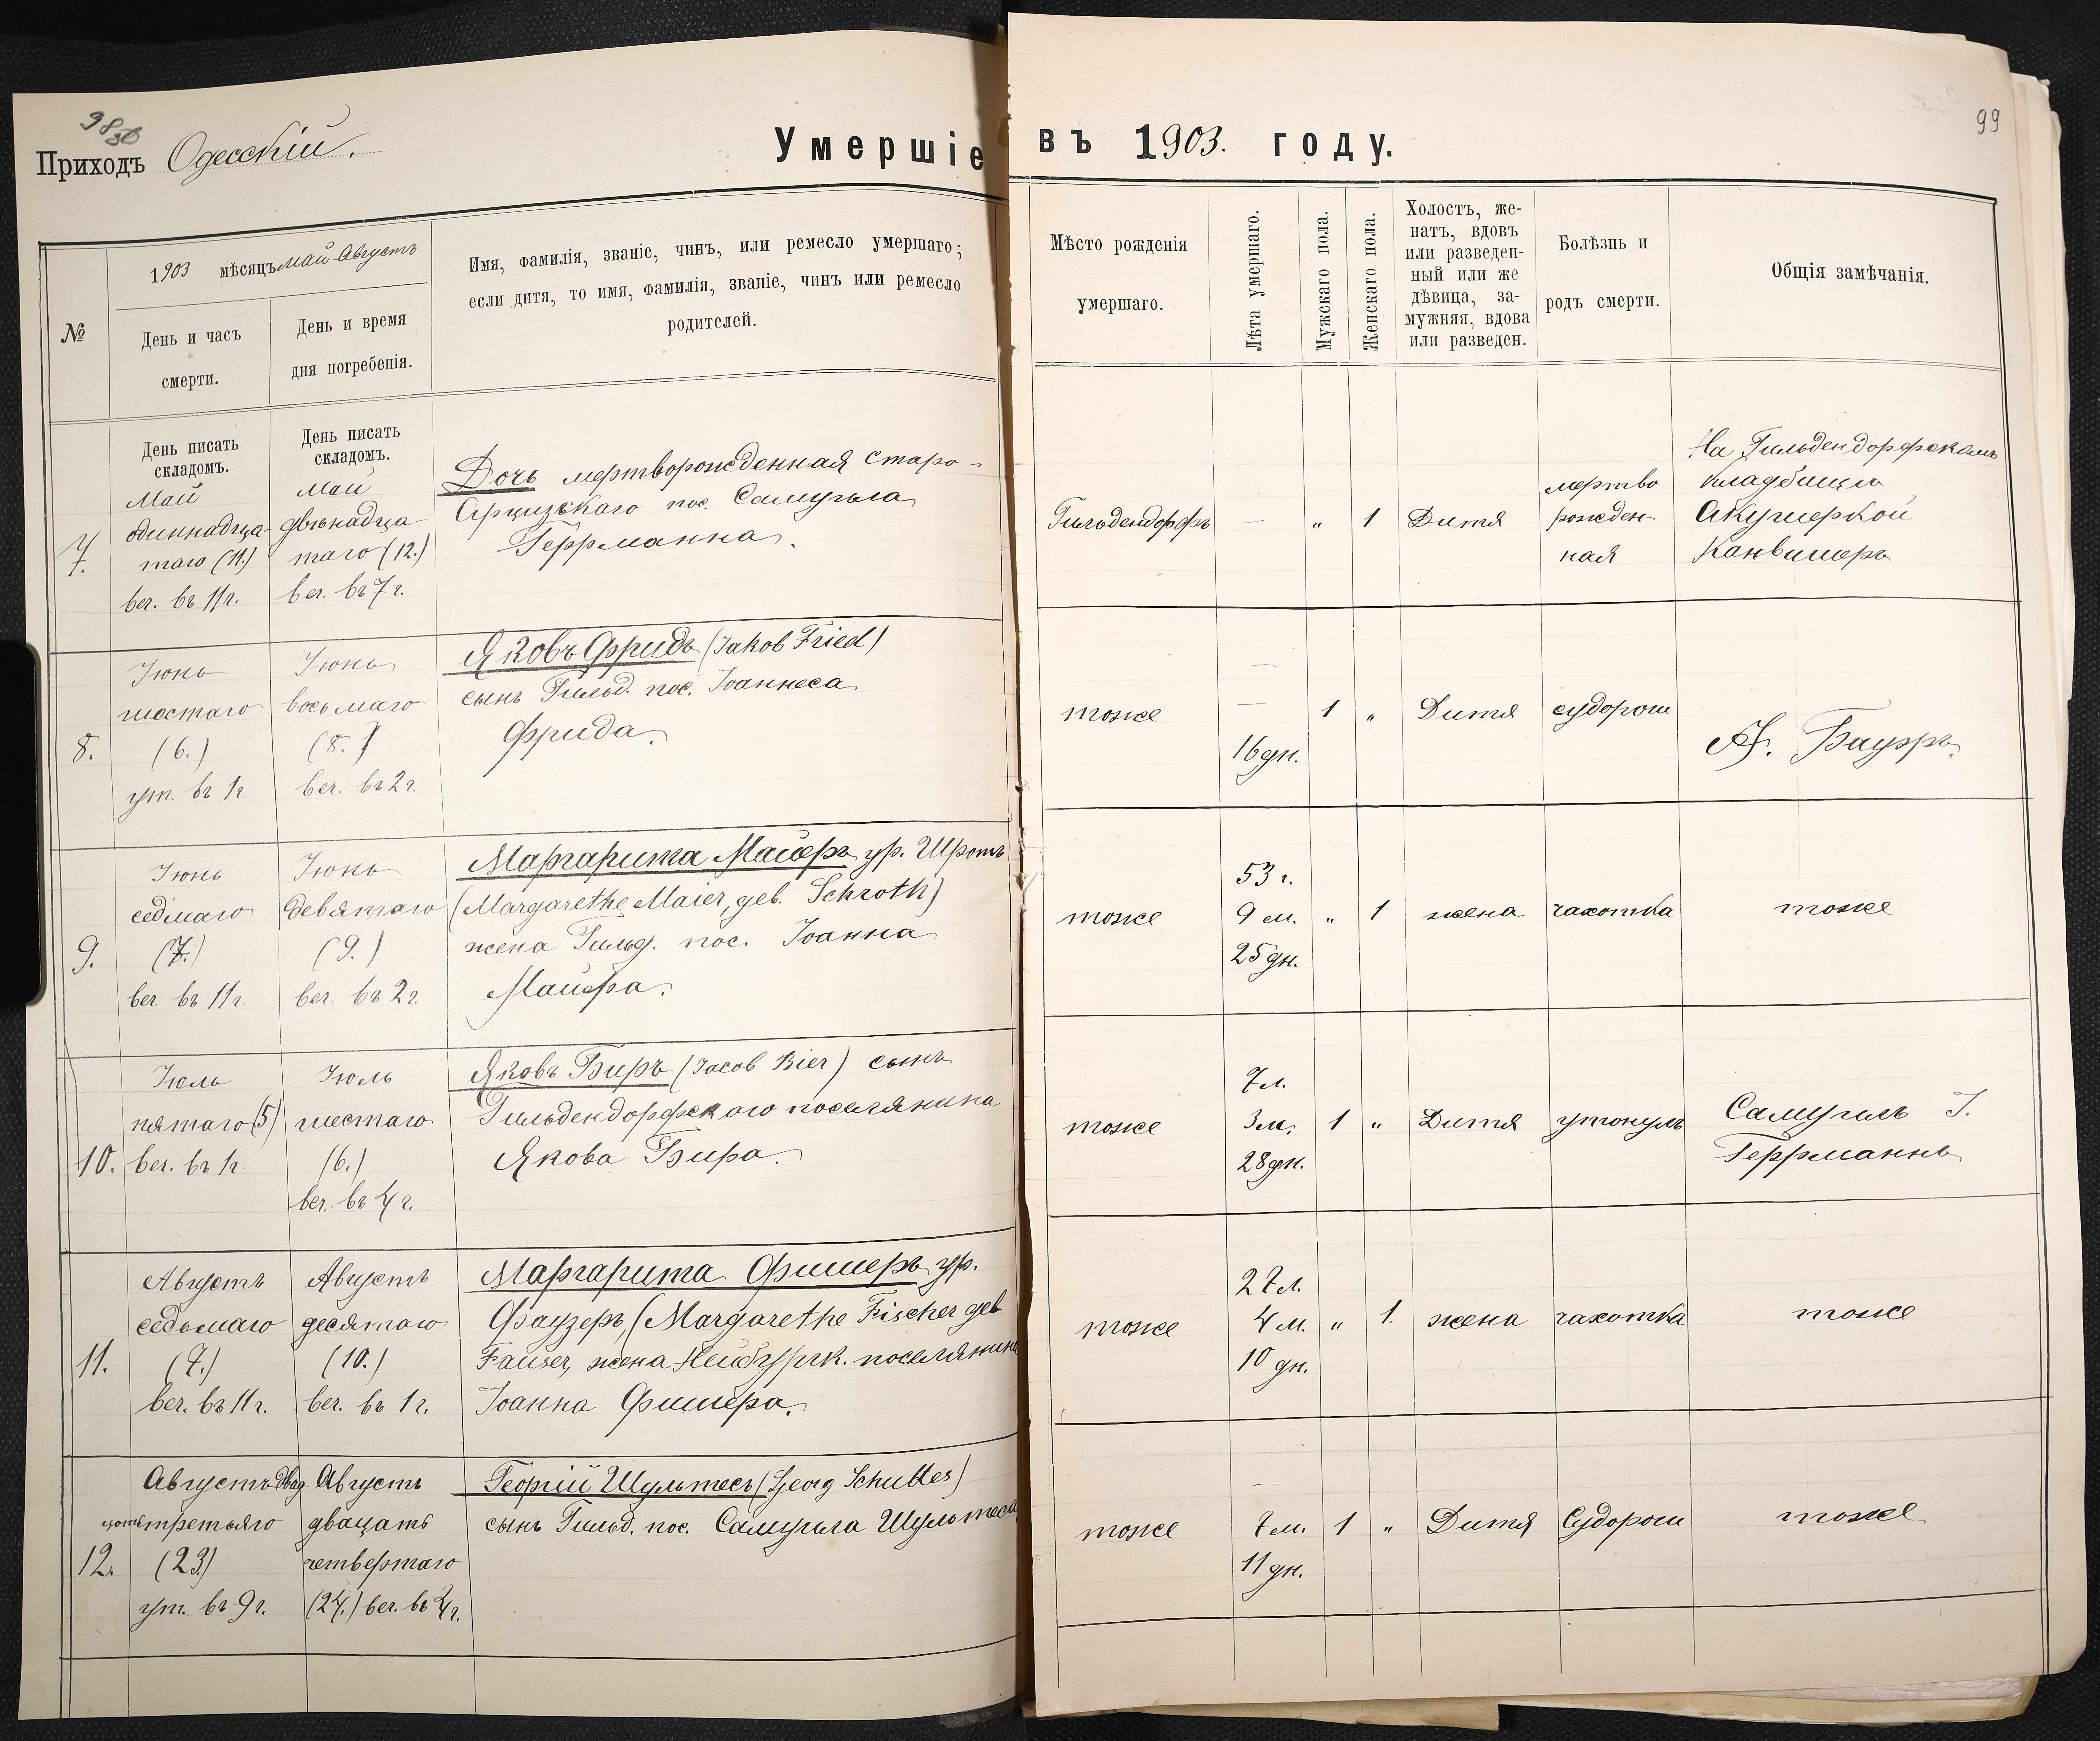 Приходъ Одесскій.
Умершіе въ 1903. году.
99
№
1903 мѣсяцъ Май-Августъ
День и часъ
смерти.
День и время
дня погребенія.
Имя, фамилія, званіе, чинъ, или ремесло умершаго;
если дитя, то имя, фамилія, званіе, чинъ или ремесло
родителей.
Мѣсто рожденія
умершаго.
Лѣта умершаго.
Мужскаго пола.
Женскаго пола.
Холостъ, же-
натъ, вдовъ
или разведен-
ный или же
дѣвица, за-
мужняя, вдова
или разведен.
Болѣзнь и
родъ смерти.
Общія замѣчанія.
День писать
складомъ.
День писать
складомъ.
7.
Май
одиннадца-
таго (11.)
веч. въ 11 г.
Май
двѣнадца-
таго (12.)
веч. въ 7 г.
Дочь мертворожденная Старо-
Арцизскаго пос. Самуила
Геррманна.
Гильдендорфъ
—
"
1
Дитя
мертво
рожден-
ная
На Гильдендорфскомъ
кладбищѣ
Акушеркой
8.
Іюнь
шестаго
(6.)
ут. въ 1 г.
Іюнь
восьмаго
(8.)
веч. въ 2 г.
Яковъ Фридъ (Jakob Fried)
сынъ Гильд. пос. Іоаннеса
Фрида.
тоже
—
—
16 дн.
1
"
Дитя
судороги
А. Бауэръ.
9.
Іюнь
седмаго
(7.)
веч. въ 11 г.
Іюнь
девятаго
(9.)
веч. въ 2 г.
Маргарита Майеръ ур. Шротъ
(Margarethe Maier, geb. Schroth)
жена Гильд. пос. Іоанна
Майера.
тоже
53 г.
9 м.
25 дн.
"
1
жена
чахотка
тоже
10.
Іюль
пятаго (5)
веч. въ 1 г.
Іюль
шестаго
(6.)
веч. въ 4 г.
Яковъ Биръ (Jacob Bier) сынъ
Гильдендорфскаго поселянина
Якова Бира.
тоже
7 л.
3 м.
28 дн.
1
"
Дитя
утонулъ
Самуилъ I.
Геррманнъ
11.
Августъ
седьмаго
(7.)
веч. въ 11 г.
Августъ
десятаго
(10.)
веч. въ 1 г.
Маргарита Фишеръ ур.
Фаузеръ, (Margarethe Fischer geb
Fauser, жена Нейбургк. поселянина
Іоанна Фишера.
тоже
27 л.
4 м.
10 дн.
"
1.
жена
чахотка
тоже
12.
Августъ двад
цать третьяго
(23.)
ут. въ 9 г.
Августъ
двацать
четвертаго
(24.) веч. въ 4 г.
Георгій Шультесъ (Georg Schultes)
сынъ Гильд. пос. Самуила Шультеса
тоже
—
7 м.
11 дн.
1
"
Дитя
Судороги
тоже